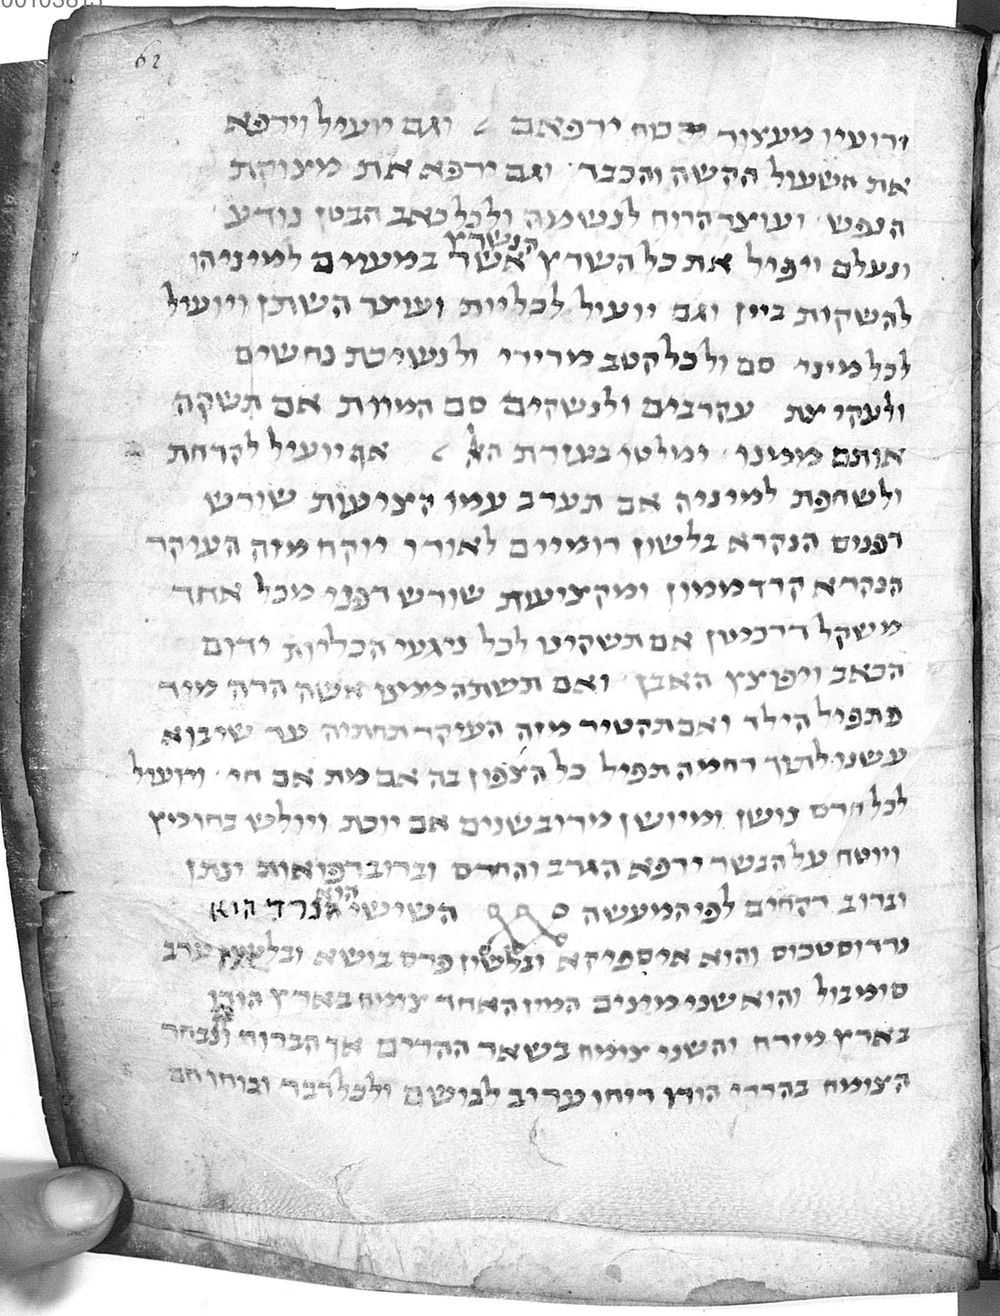 00103813
62
זרועיו מעצור ירפאם וגם יועיל וירפא
את השעול הקשה והכבד וגם ירפא את מצוקת
הנפש ועוצר הרוח לנשמה ולכל כאב הבטן נודע
הנשרץ
ונעלם ויפיל את כל השרץ אשר במעיים למיניהן
להשקות ביין וגם יועיל לכליות ועוצר השתן ויועיל
לכל מיני סם ולכל קטב מרירי ולנשיכת נחשים
ולעקיצת עקרבים ולנשקים סם המוות אם תשקה
אותם ממנו ימלטו בעזרת האל אף יועיל לקדחת
ולשחפת למיניה אם תערב עמו קציעות שורש
דפנים הנקרא בלשון רומיים לאורו יוקח מזה העיקר
הנקרא קרדממון ומקציעת שורש דפני מכל אחד
משקל דרכמון אם תשקינו לכל ניגעי הכליות ידום
הכאב ויפוצץ האבן ואם תשתה ממנו אשה הרה מיד
תפיל הילד ואם תקטיר מזה העיקר תחתיה עד שיבוא
עשנו לתוך רחמה תפיל כל הצפון בה אם מת אם חי ויועיל
לכל חרס נושן ומיושן מרוב שנים אם יוכת ויולש בחומץ
ויוטח על הבשר ירפא הגרב והחרס וברוב רפואות ינתן
וברוב רקחים לפי המעשה השישי הנרד הוא
הוא
נרדוסטכוס והוא איספיקא ובלשון פרס בושא ובלשון ערב
סומבול והוא שני מינים המין האחד צומח בארץ הודו
בארץ מזרח והשני צומח בשאר ההרים אך הברור והנבחר
הצומח בהררי הודו ריחו עריב לבושם ולכל דבר וכוחו חם